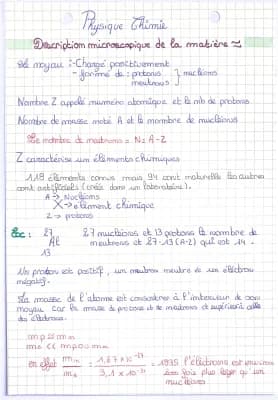 Physique Chimie
Description microscopique de la matière
Le noyau : - Chargé positivement
- formé de : protons } nucléons
neutrons
Nombre Z appelé numéro atomique et le nb de protons.
Nombre de masse noté A et le nombre de nucléons
Le nombre de neutrons = N = A-Z
Z caractérise un éléments chimiques
118 éléments connus mais 94 sont naturelle les autres
sont artificiels (créés dans un laboratoire).
A → Nucléons
X → élément chimique
Z → protons
Ex : 27
Al
13
27 nucléons et 13 protons le nombre de
neutrons et 27-13 (A-Z) qui est 14.
Un proton est positif, un neutron neutre et un électron
négatif.
La masse de l'atome est à l'intérieur de son
noyau car la masse de protons et de neutrons et supérieur à celle
des électrons.
mp ≈ mn
me << mp ou mn
en effet mn / me = 1,67 × 10⁻²⁷ / 9,1 × 10⁻³¹ = 1835 l'électrons est environ
fois plus léger qu'un
nucléons